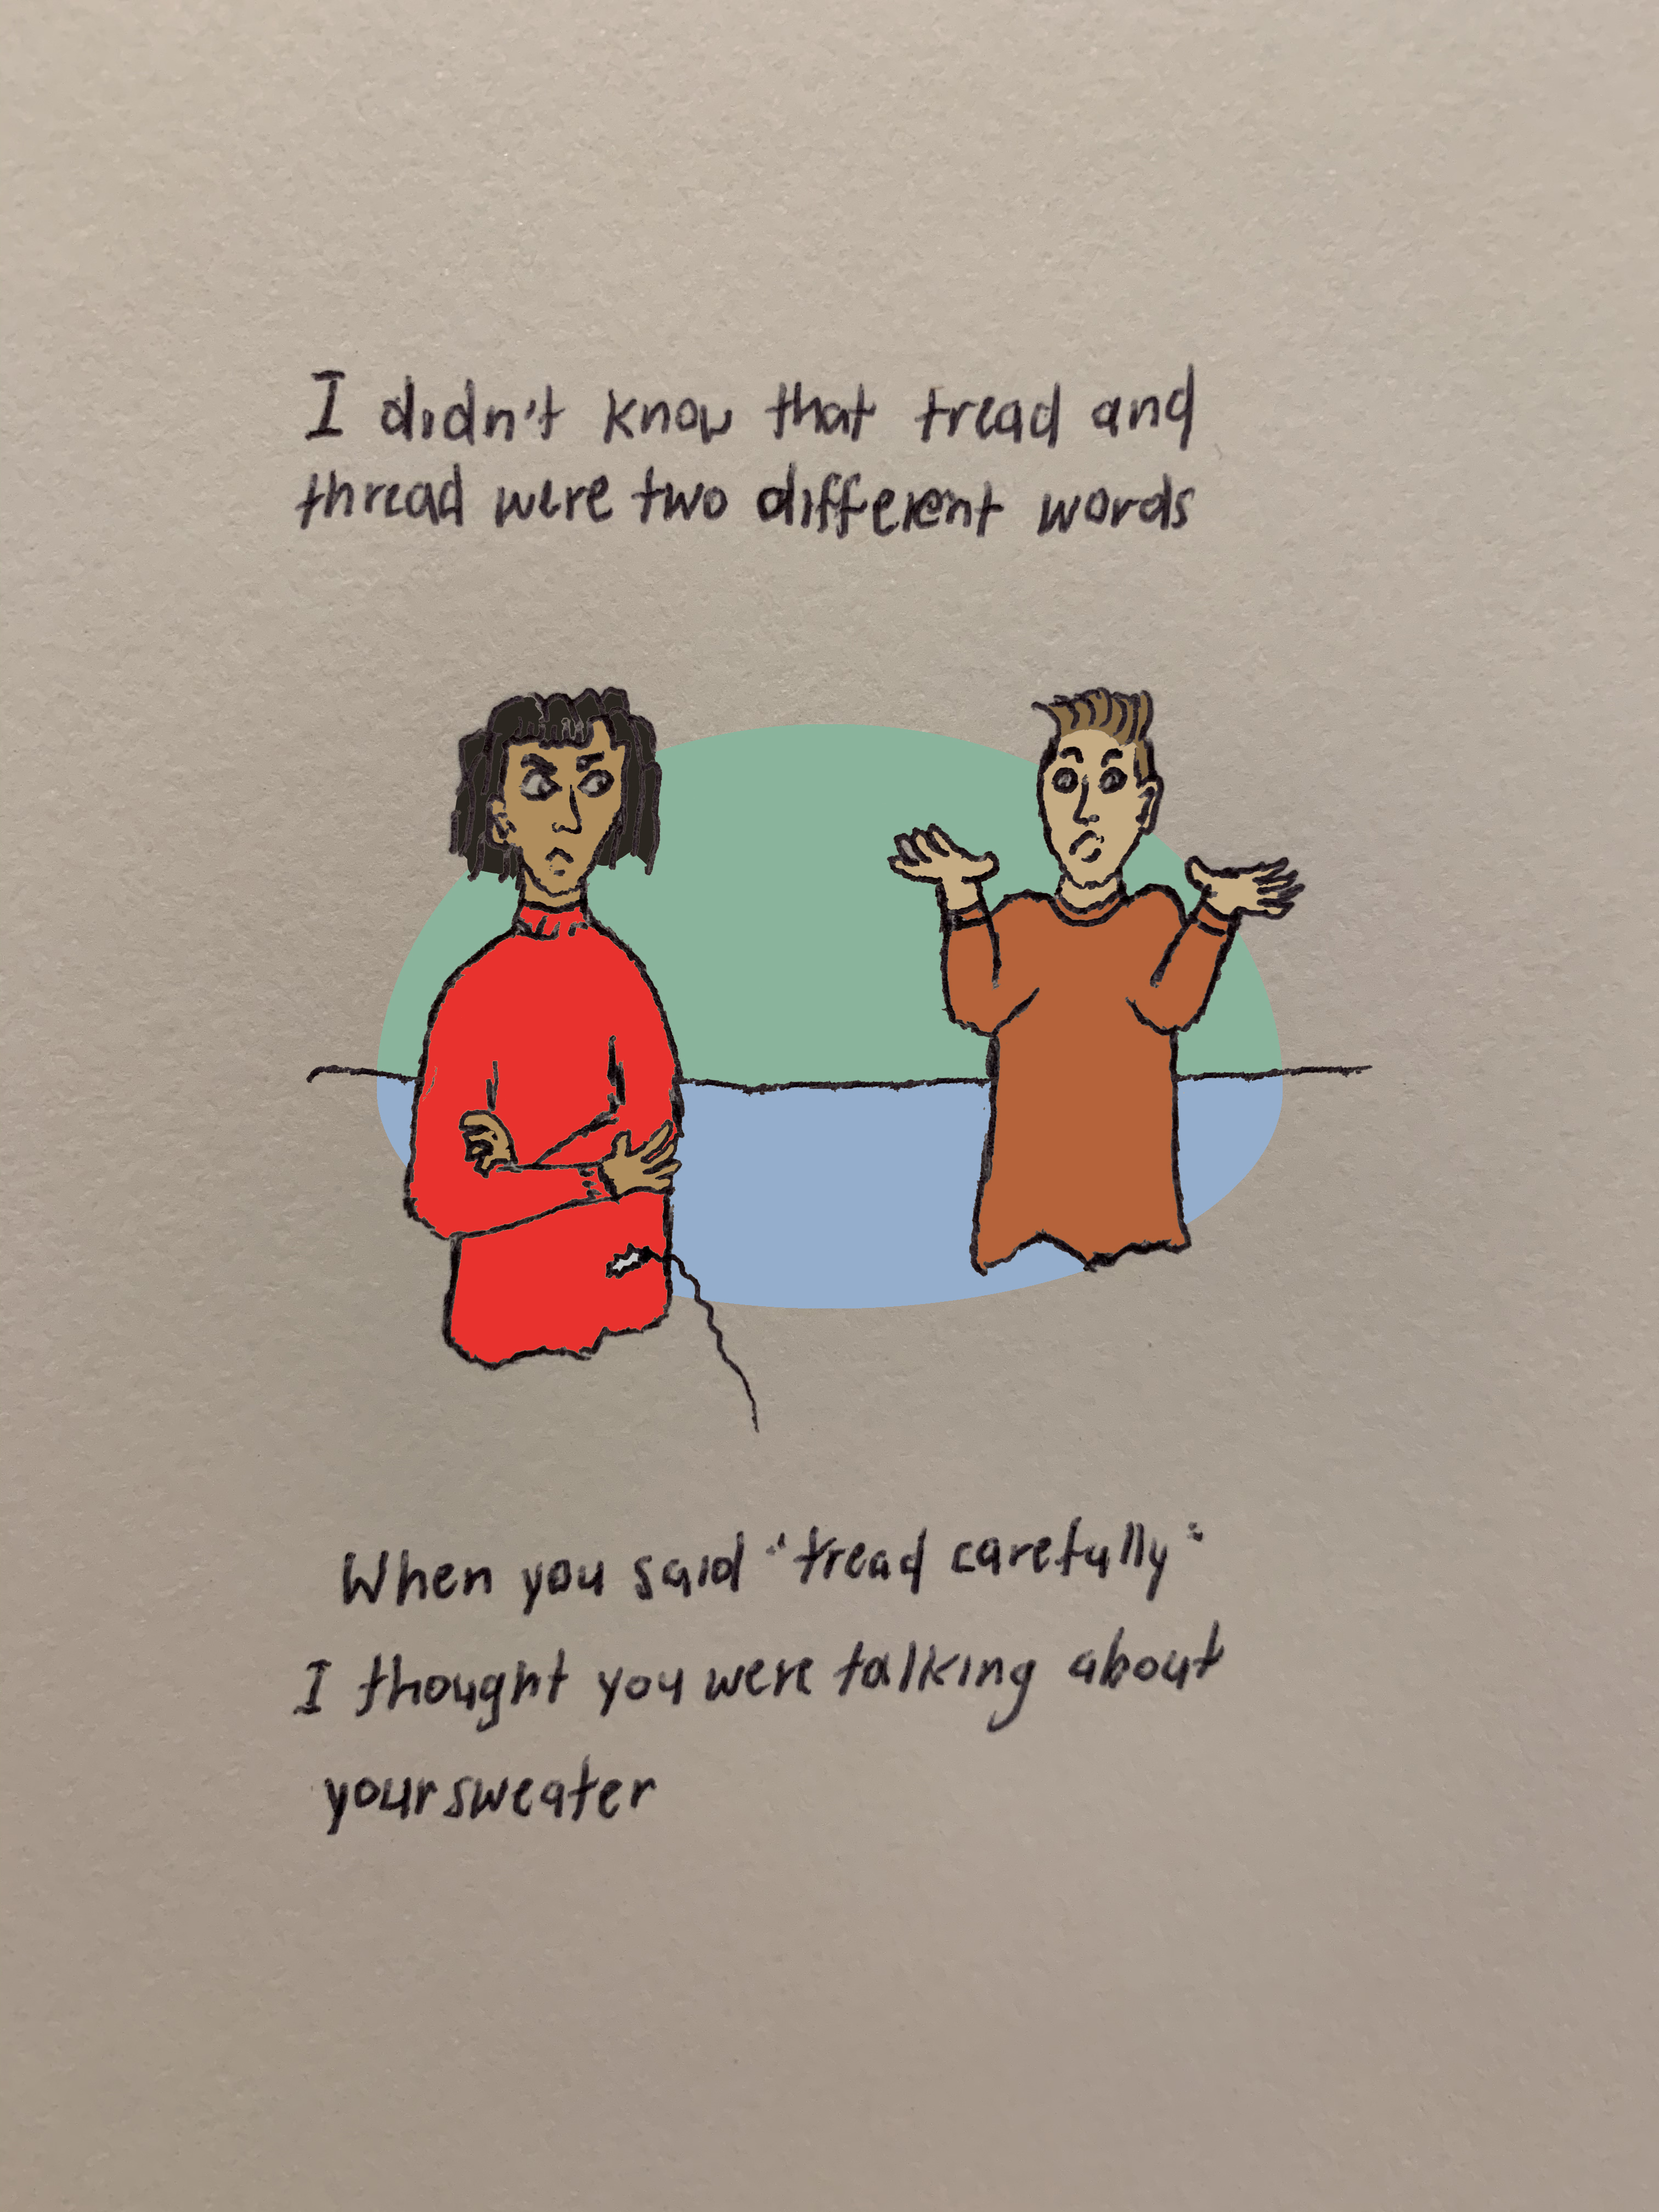 I didn't know that tread and
thread were two different words
When you said "tread carefully"
I thought you were talking about
your sweater